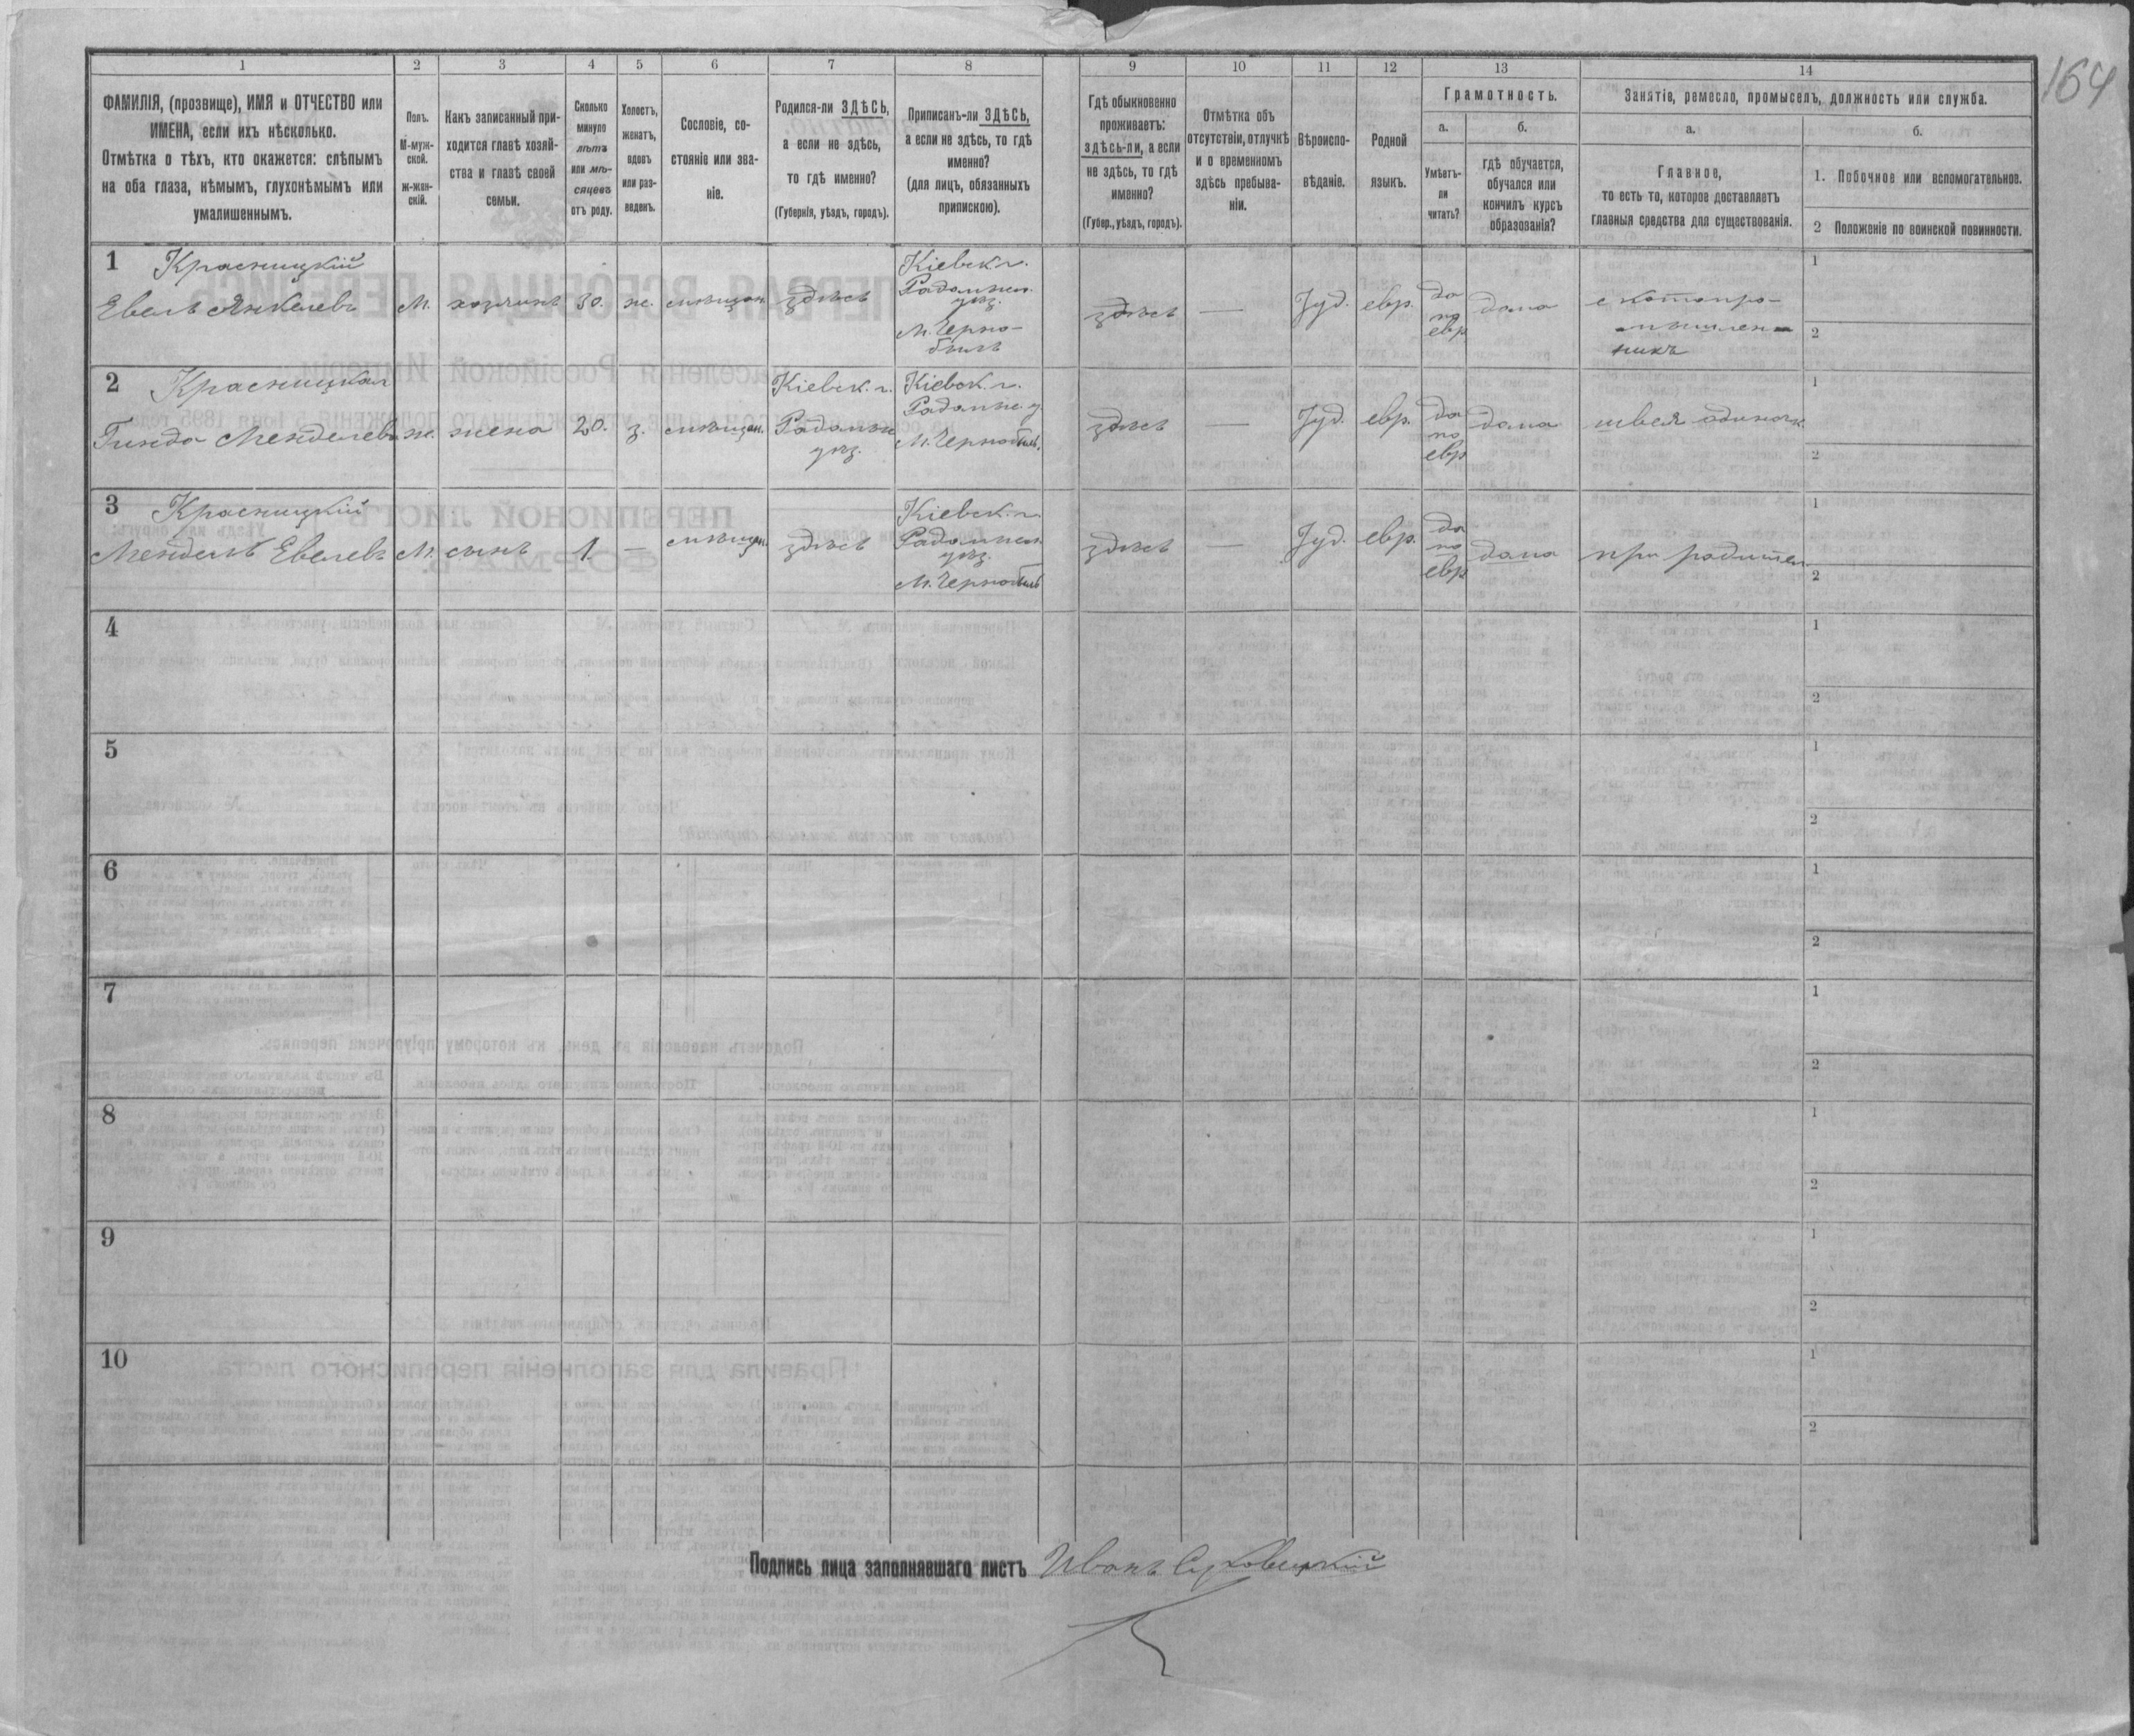 164
1 2 3 4 5 6 7 8 9 10 11 12 13 14
ФАМИЛІЯ, (прозвище), ИМЯ и ОТЧЕСТВО или
ИМЕНА, если ихъ нѣсколько.
Отмѣтка о тѣхъ, кто окажется: слѣпымъ
на оба глаза, нѣмымъ, глухонѣмымъ или
умалишеннымъ.
Полъ.
М-муж-
ской.
ж-жен-
скій.
Какъ записанный при-
ходится главѣ хозяй-
ства и главѣ своей
семьи.
Сколько
минуло
лѣтъ
или мѣ-
сяцевъ
отъ роду.
Холостъ,
женатъ,
вдовъ
или раз-
веденъ.
Сословіе, со-
стояніе или зва-
ніе.
Родился-ли ЗДѢСЬ,
а если не здѣсь,
то гдѣ именно?
(Губернія, уѣздъ, городъ).
Приписанъ-ли ЗДѢСЬ,
а если не здѣсь, то гдѣ
именно?
(для лицъ, обязанныхъ
припискою).
Гдѣ обыкновенно
проживаетъ:
здѣсь-ли, а если
не здѣсь, то гдѣ
именно?
(Губер., уѣздъ, городъ).
Отмѣтка объ
отсутствіи, отлучкѣ
и о временномъ
здѣсь пребыва-
ніи.
Вѣроиспо-
вѣданіе.
Родной
языкъ.
Грамотность.
а.
Умѣетъ-
ли
читать?
б.
гдѣ обучается,
обучался или
кончилъ курсъ
образованія?
Занятіе, ремесло, промыселъ, должность или служба.
а.
Главное,
то есть то, которое доставляетъ
главныя средства для существованія.
б.
1. Побочное или вспомогательное.
2 Положеніе по воинской повинности.
1 Красницкій
Евель Янкелевъ
М.
хозяинъ
30.
ж.
мѣщан.
здѣсь
Кіевск. г.
Радомысл.
уѣз.
М. Черно-
быль
здѣсь
—
Іуд.
евр.
да
по
евр
дома
скотопро-
мышлен-
никъ
1
2
2 Красницкая
Гинда Менделева
ж.
жена
20.
з.
мѣщан.
Кіевск. г.
Радомыс
уѣз.
Кіевск. г.
М. Чернобыль.
здѣсь
—
Іуд.
евр.
да
по
евр
дома
швея одиночк
1
2
3 Красницкій
Мендель Евелевъ
М.
сынъ
1
—
мѣщан.
здѣсь
Кіевск. г.
Радомысл.
уѣз.
М. Чернобыль
здѣсь
—
Іуд.
евр.
да
по
евр
дома
при родител.
1
2
4
1
2
5
1
2
6
1
2
7
1
2
8
1
2
9
1
2
10
1
2
Подпись лица заполнявшаго листъ Иванъ